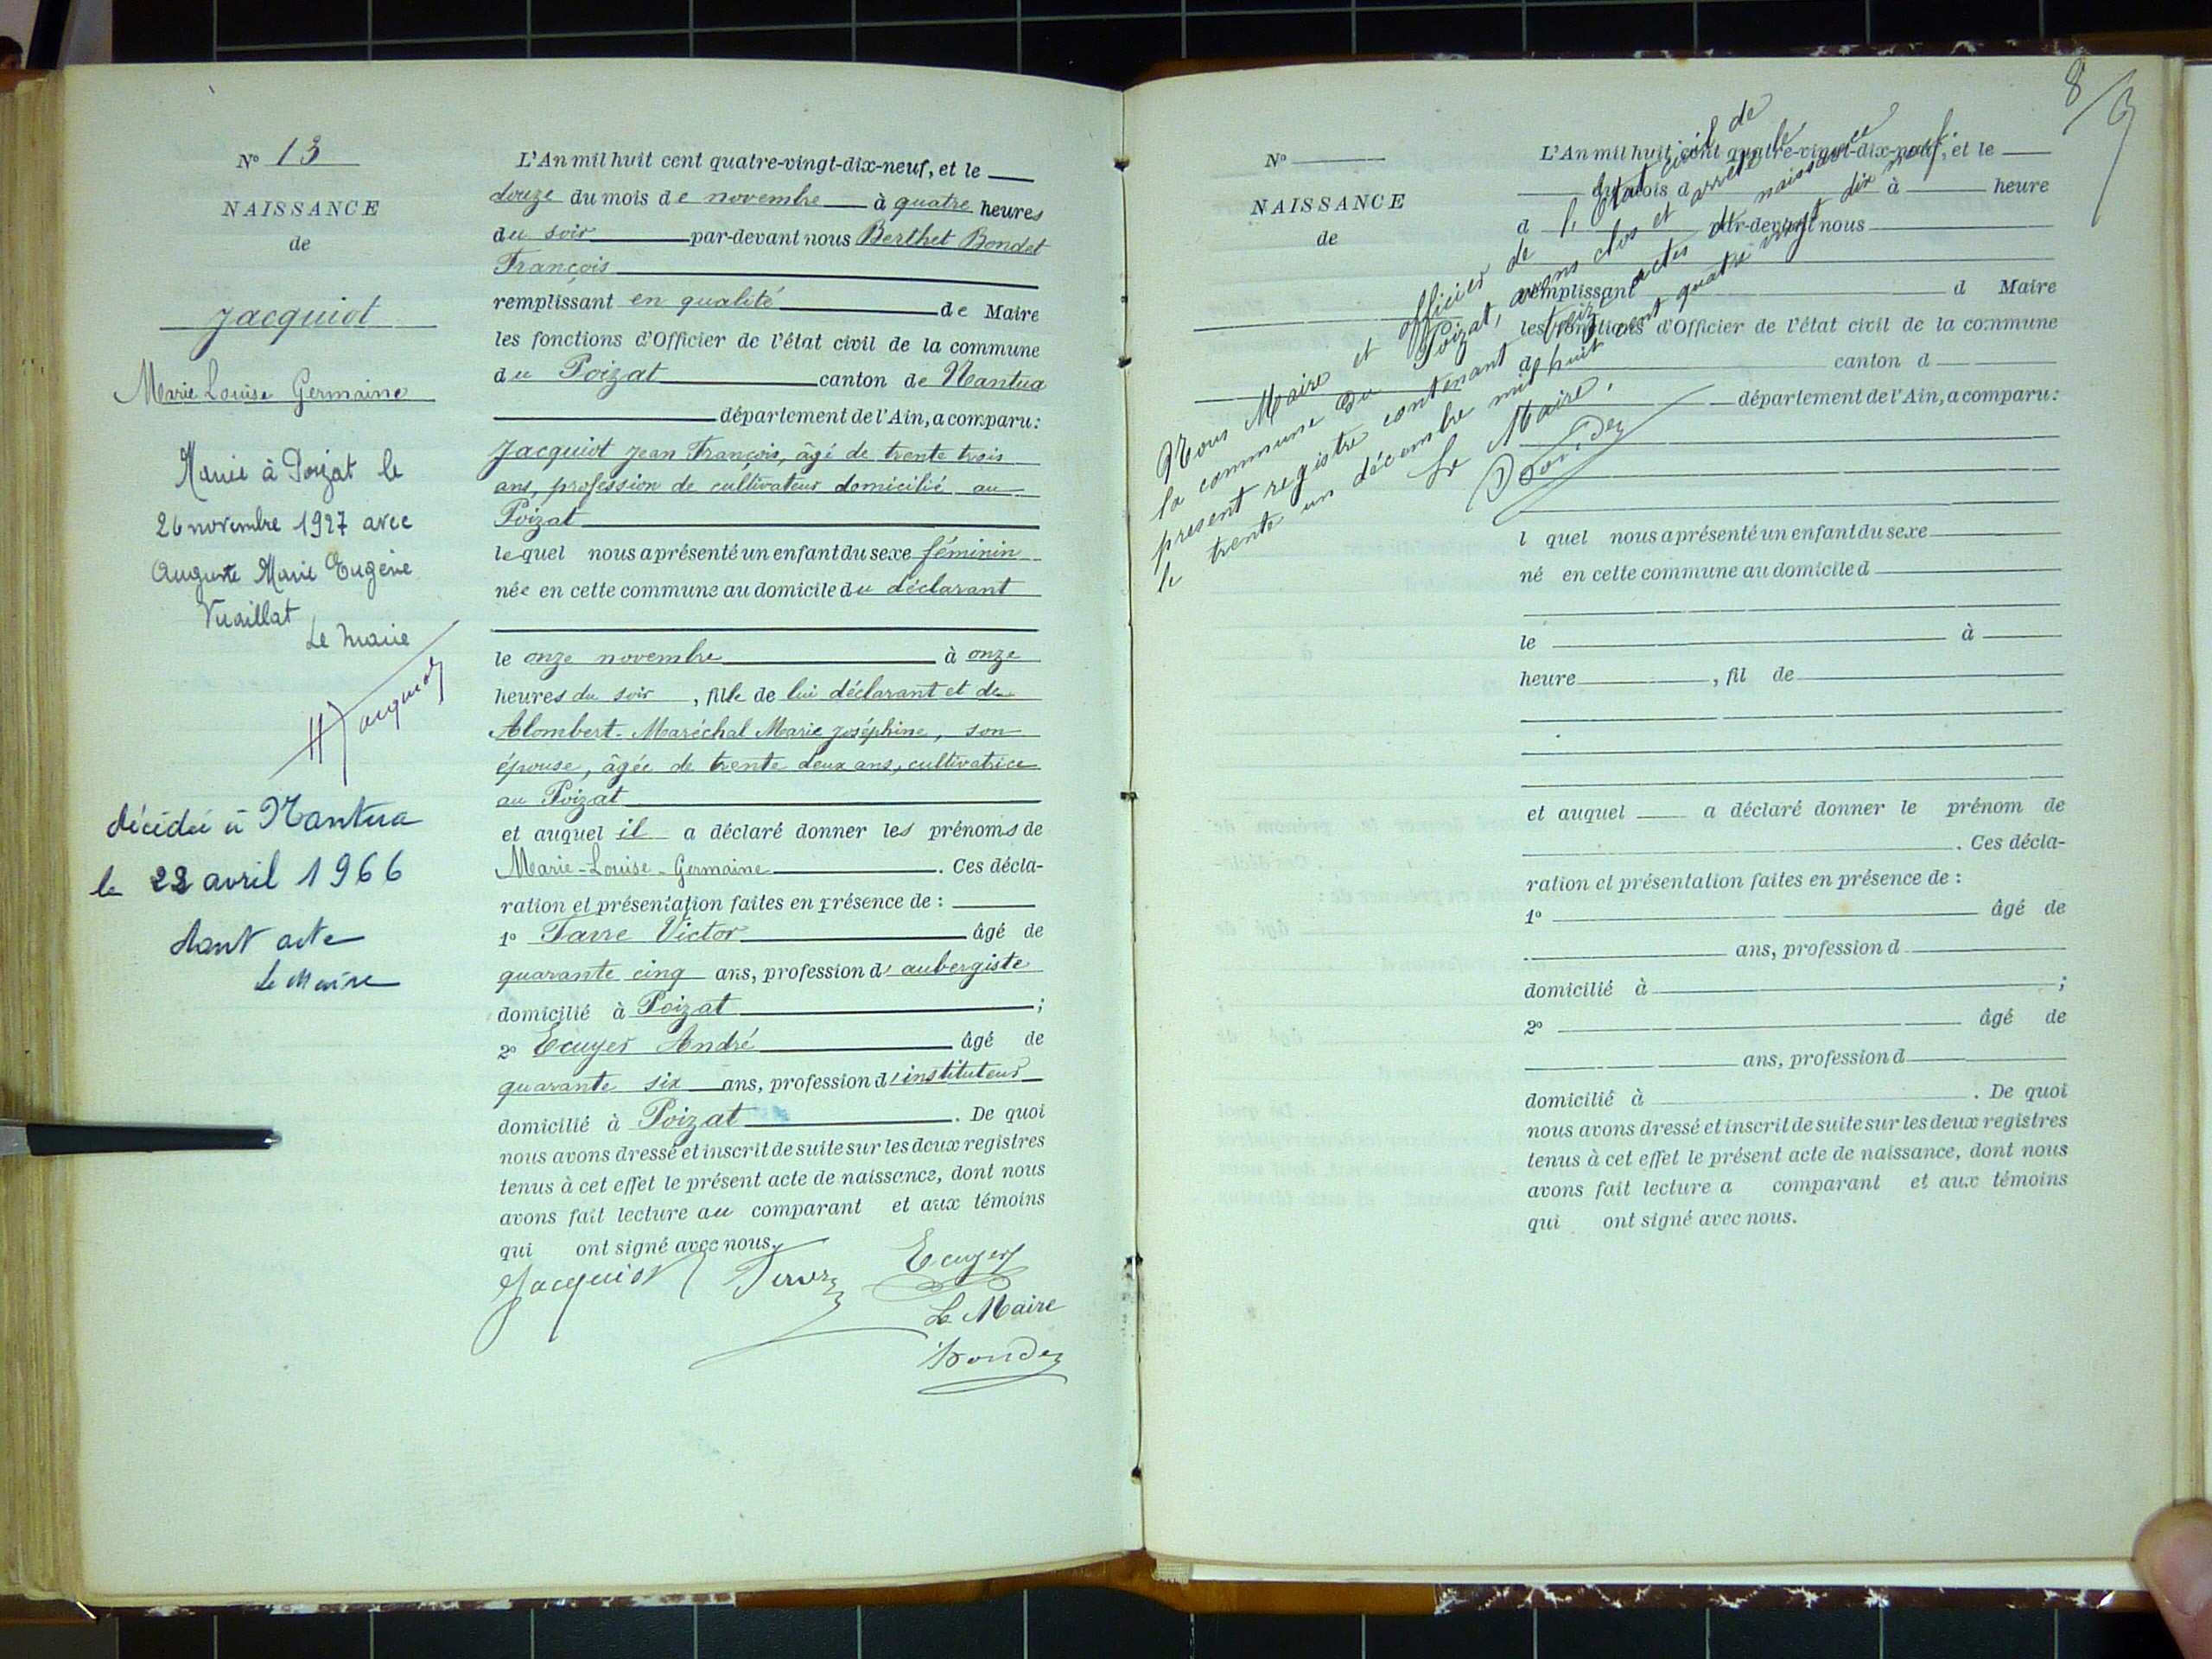 N° 13
NAISSANCE
de
Jacquiot
Marie Louise Germaine
Mariée à Poizat le
26 novembre 1927 avec
Auguste Marie Eugène
Vuaillat
Le Maire
Jacquiot
décédée à Nantua
le 22 avril 1966
dont acte
Le Maire
L'An mil huit cent quatre-vingt-dix-neuf, et le
douze du mois de novembre à quatre heures
du soir par-devant nous Berthet Bondet
François
remplissant en qualité de Maire
les fonctions d'Officier de l'état civil de la commune
du Poizat canton de Nantua
département de l'Ain, a comparu:
Jacquiot Jean François, âgé de trente trois
ans, profession de cultivateur domicilié au
Poizat
lequel nous a présenté un enfant du sexe féminin
née en cette commune au domicile du déclarant
le onze novembre à onze
heures du soir, fille de lui déclarant et de
Alombert-Maréchal Marie Joséphine, son
épouse, âgée de trente deux ans, cultivatrice
au Poizat
et auquel il a déclaré donner les prénoms de
Marie-Louise-Germaine. Ces décla-
ration et présentation faites en présence de :
1° Favre Victor âgé de
quarante cinq ans, profession d'aubergiste
domicilié à Poizat ;
2° Ecuyer André âgé de
quarante six ans, profession d'instituteur
domicilié à Poizat. De quoi
nous avons dressé et inscrit de suite sur les deux registres
tenus à cet effet le présent acte de naissance, dont nous
avons fait lecture au comparant et aux témoins
qui ont signé avec nous.
Jacquiot Ecuyer
Le Maire
Bondet
8
N°
NAISSANCE
de
Nous Maire et officier de l'Etat civil de
la commune du Poizat, avons clos et arrêté le
présent registre contenant treize actes de naissance
le trente un décembre mil huit cent quatre vingt dix neuf.
Le Maire,
Bondet
L'An mil huit cent quatre-vingt-dix-neuf, et le
du mois d à heure
d par-devant nous
remplissant d Maire
les fonctions d'Officier de l'état civil de la commune
d canton d
département de l'Ain, a comparu:
l quel nous a présenté un enfant du sexe
né en cette commune au domicile d
le à
heure , fil de
et auquel a déclaré donner le prénom de
. Ces décla-
ration et présentation faites en présence de :
1° âgé de
ans, profession d
domicilié à ;
2° âgé de
ans, profession d
domicilié à . De quoi
nous avons dressé et inscrit de suite sur les deux registres
tenus à cet effet le présent acte de naissance, dont nous
avons fait lecture a comparant et aux témoins
qui ont signé avec nous.